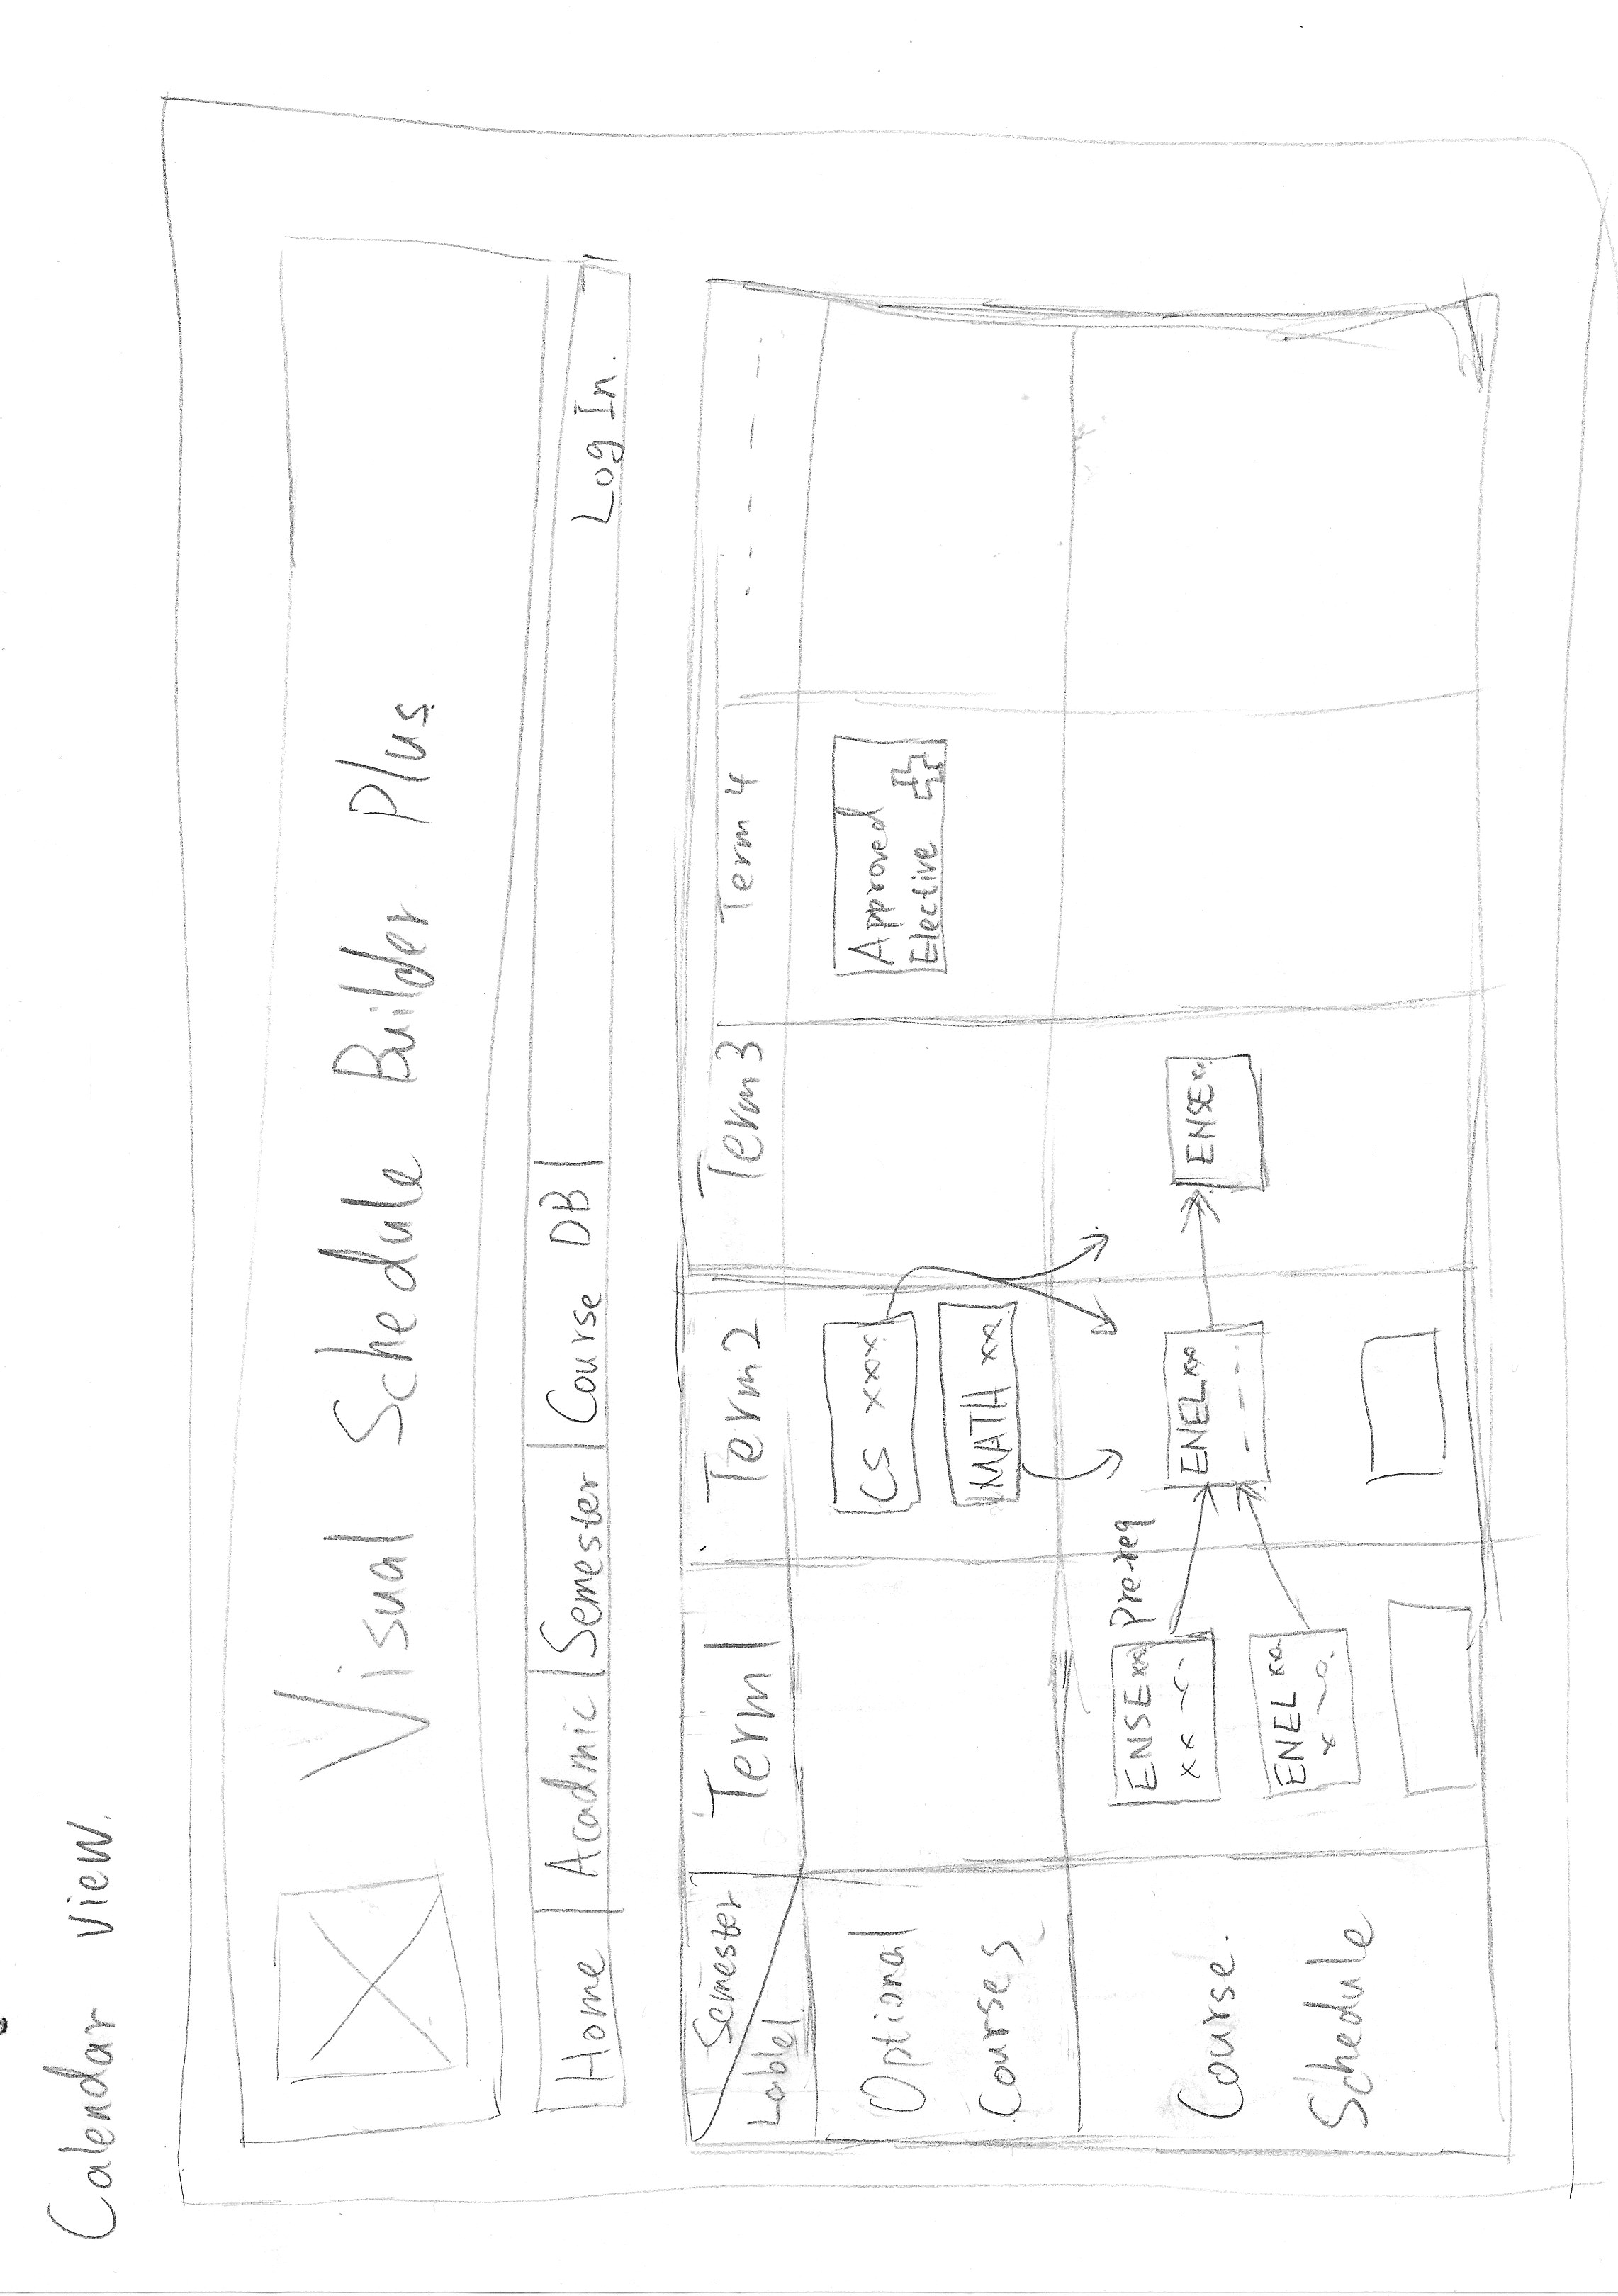 Calendar view.
Visual Schedule Builder Plus
Home Acadmic Semester Course DB Log In.
Semester
Lable
Term 1 Term 2 Term 3 Term 4
Optional
Courses
CS xxx
MATH xx
Approved
Elective
Course.
Schedule
ENSE xx
xx
Pre-req
ENEL xx
x
ENEL xx
ENSE xx